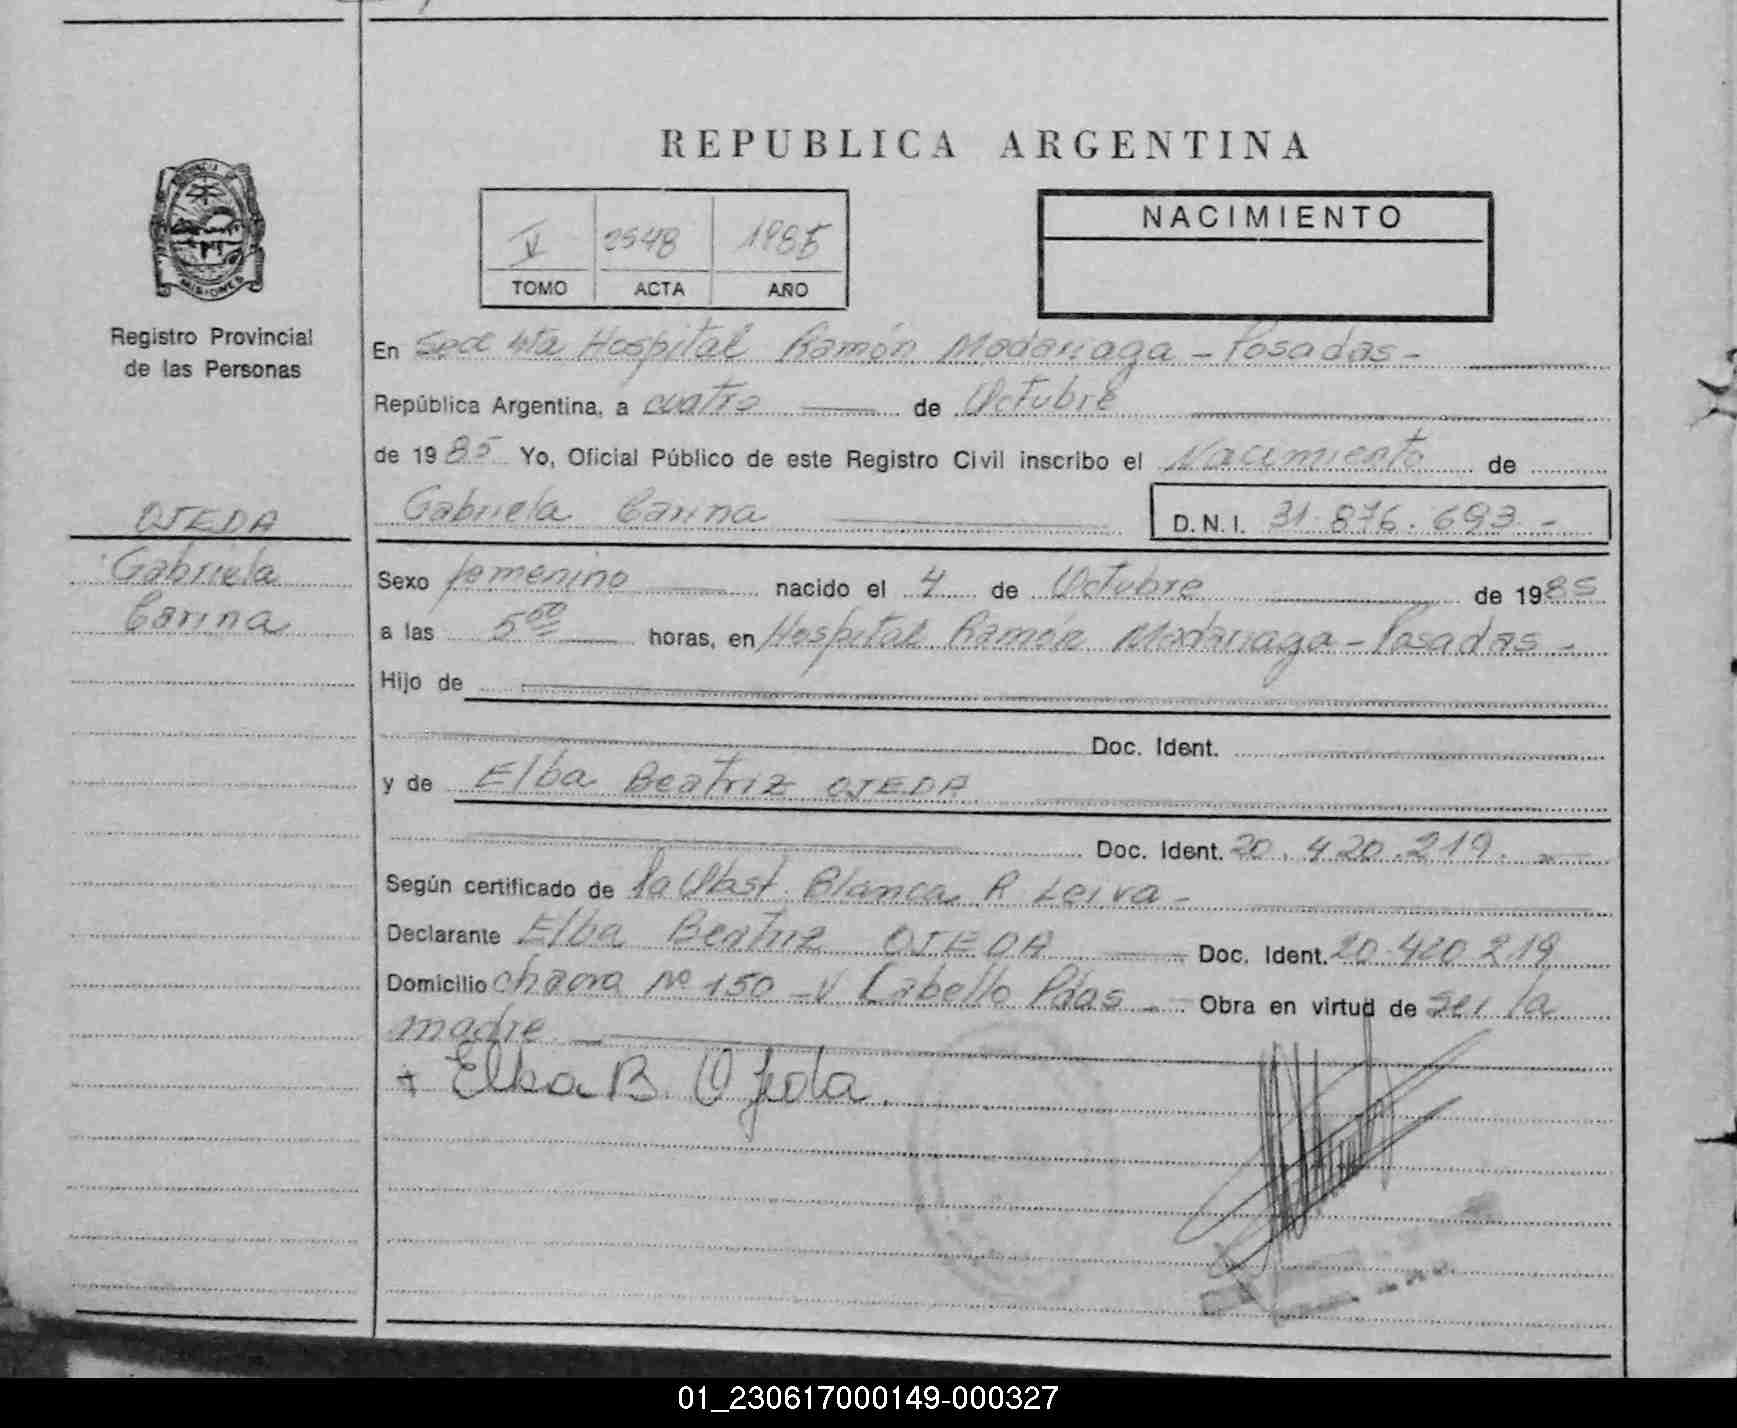 REPUBLICA ARGENTINA
V 2548 1985
TOMO ACTA AÑO
NACIMIENTO
MISIONES
Registro Provincial
de las Personas
OJEDA
Gabriela
Carina
En Secc 4ta Hospital Ramón Madariaga - Posadas -
República Argentina, a cuatro de Octubre
de 1985 Yo, Oficial Público de este Registro Civil inscribo el Nacimiento de
Gabriela Carina D.N.I. 31.876.693.-
Sexo femenino nacido el 4 de Octubre de 1985
a las horas, en Hospital Ramón Madariaga - Posadas -
Hijo de
Doc. Ident.
y de Elba Beatriz OJEDA
Doc. Ident. 20.420.219.
Según certificado de la Obst. Blanca R Leiva -
Declarante Elba Beatriz OJEDA Doc. Ident. 20.420.219
Domicilio chacra Nº 150 - V Cabello Pdas - Obra en virtud de ser la
madre
+ Elba B. Ojeda.
01_230617000149-000327